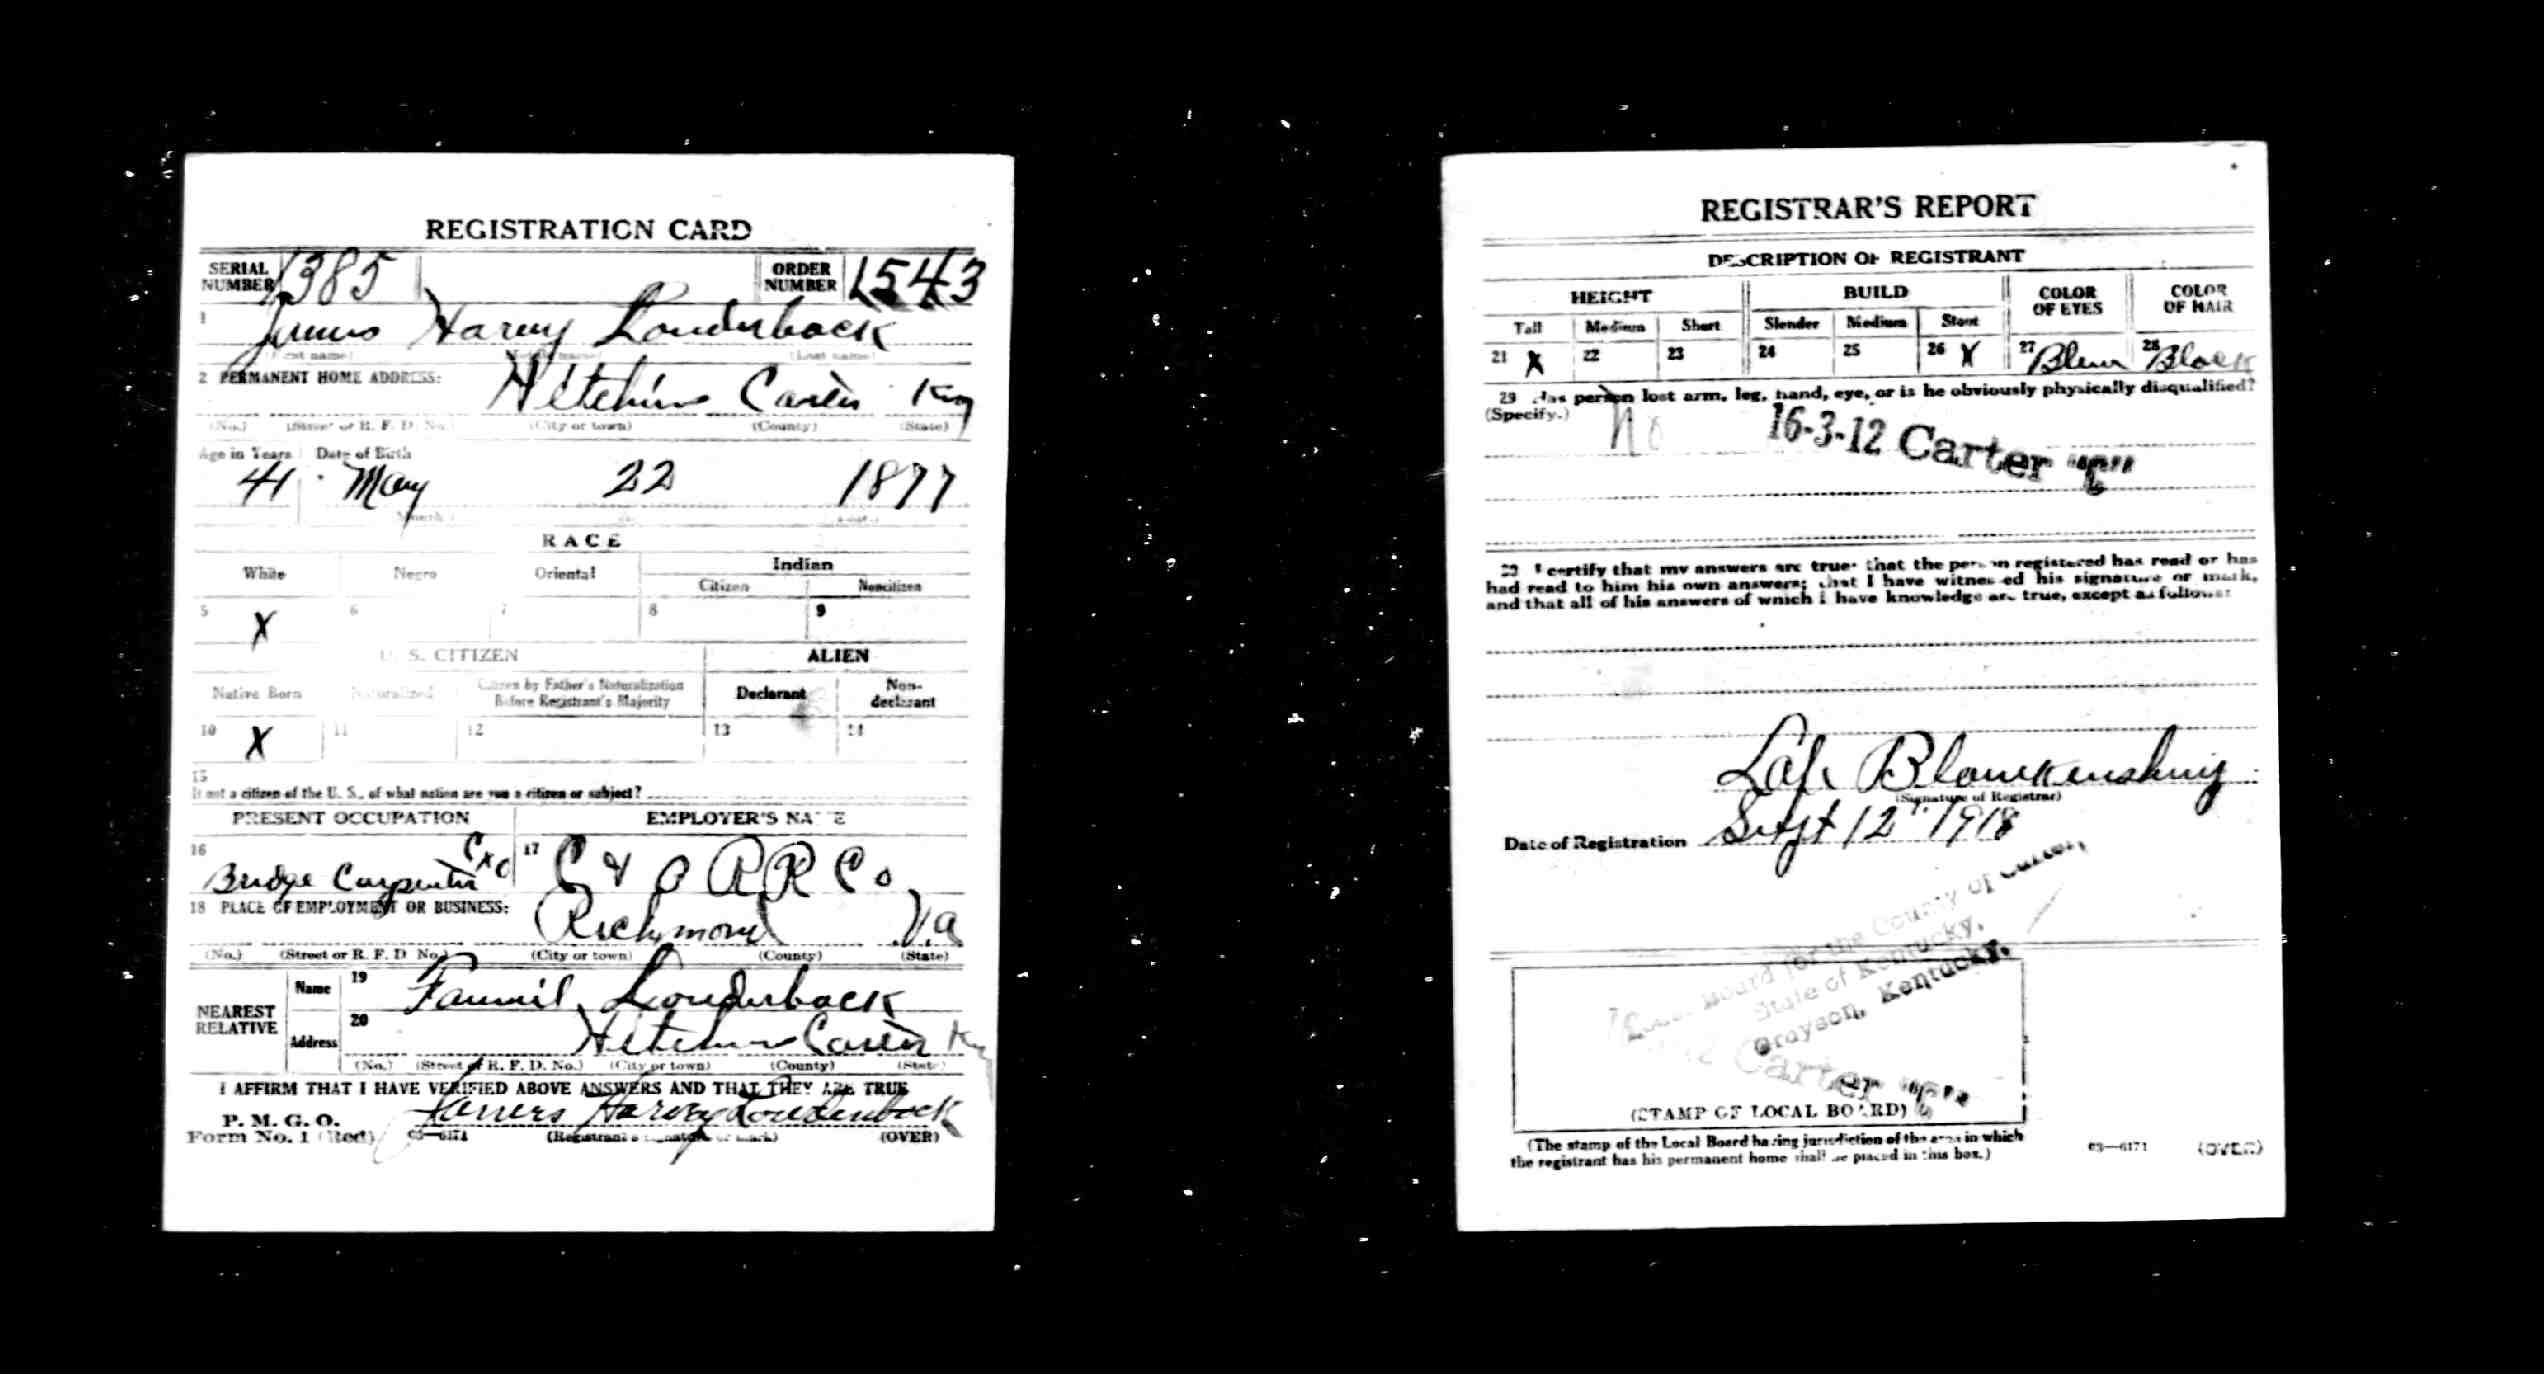 REGISTRATION CARD
SERIAL NUMBER 1385 ORDER NUMBER 1543
1 Harvy Louderback
(First name) (Last name)
2 PERMANENT HOME ADDRESS: Hitchins Carter Ky
(No.) (Street or R. F. D. No.) (City or town) (County) (State)
Age in Years Date of Birth
41 May 22 1877
RACE
White Negro Oriental Indian
Citizen Noncitizen
5 X 6 7 8 9
U. S. CITIZEN ALIEN
Native Born Naturalized Citizen by Father's Naturalization Before Registrant's Majority Declarant Non-declarant
10 X 11 12 13 14
15
If not a citizen of the U. S., of what nation are you a citizen or subject?
PRESENT OCCUPATION EMPLOYER'S NAME
16 Bridge Carpenter C&O 17 C & O RR Co
18 PLACE OF EMPLOYMENT OR BUSINESS: Richmond Va
(No.) (Street or R. F. D. No.) (City or town) (County) (State)
NEAREST RELATIVE Name 19 Louderback
Address 20 Hitchins Carter Ky
(No.) (Street or R. F. D. No.) (City or town) (County) (State)
I AFFIRM THAT I HAVE VERIFIED ABOVE ANSWERS AND THAT THEY ARE TRUE
P. M. G. O.
Form No. 1 (Red) 03—6171 Harvy Louderback
(Registrant's signature or mark) (OVER)
REGISTRAR'S REPORT
DESCRIPTION OF REGISTRANT
HEIGHT BUILD COLOR OF EYES COLOR OF HAIR
Tall Medium Short Slender Medium Stout
21 X 22 23 24 25 26 X 27 Blue 28 Black
29 Has person lost arm, leg, hand, eye, or is he obviously physically disqualified?
(Specify.) No 16-3-12 Carter "C"
30 I certify that my answers are true; that the person registered has read or has
had read to him his own answers; that I have witnessed his signature or mark,
and that all of his answers of which I have knowledge are true, except as follows:
Blankenship
(Signature of Registrar)
Date of Registration Sept 12" 1918
Local Board for the County of Carter,
State of Kentucky,
Grayson, Kentucky.
Carter "C"
(STAMP OF LOCAL BOARD)
(The stamp of the Local Board having jurisdiction of the area in which
the registrant has his permanent home shall be placed in this box.)
03—6171 (OVER)